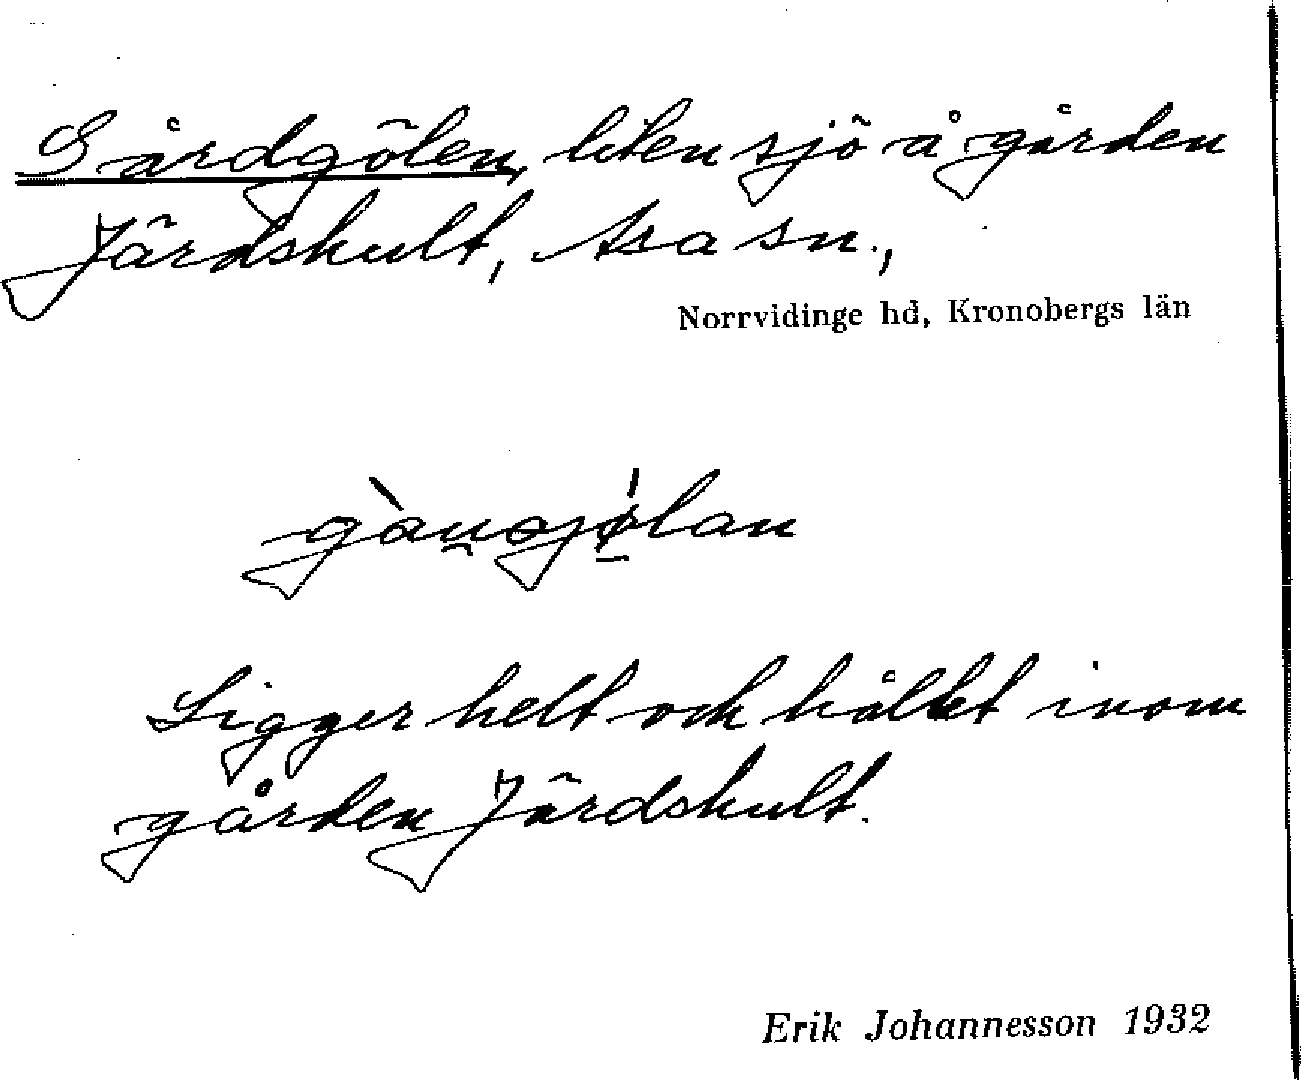 Gårdgölen, liten sjö å gården
Järdskult, Asa sn.,
Norrvidinge hd, Kronobergs län
Ligger helt och hållet inom
gården Järdskult.
Erik Johannesson 1932